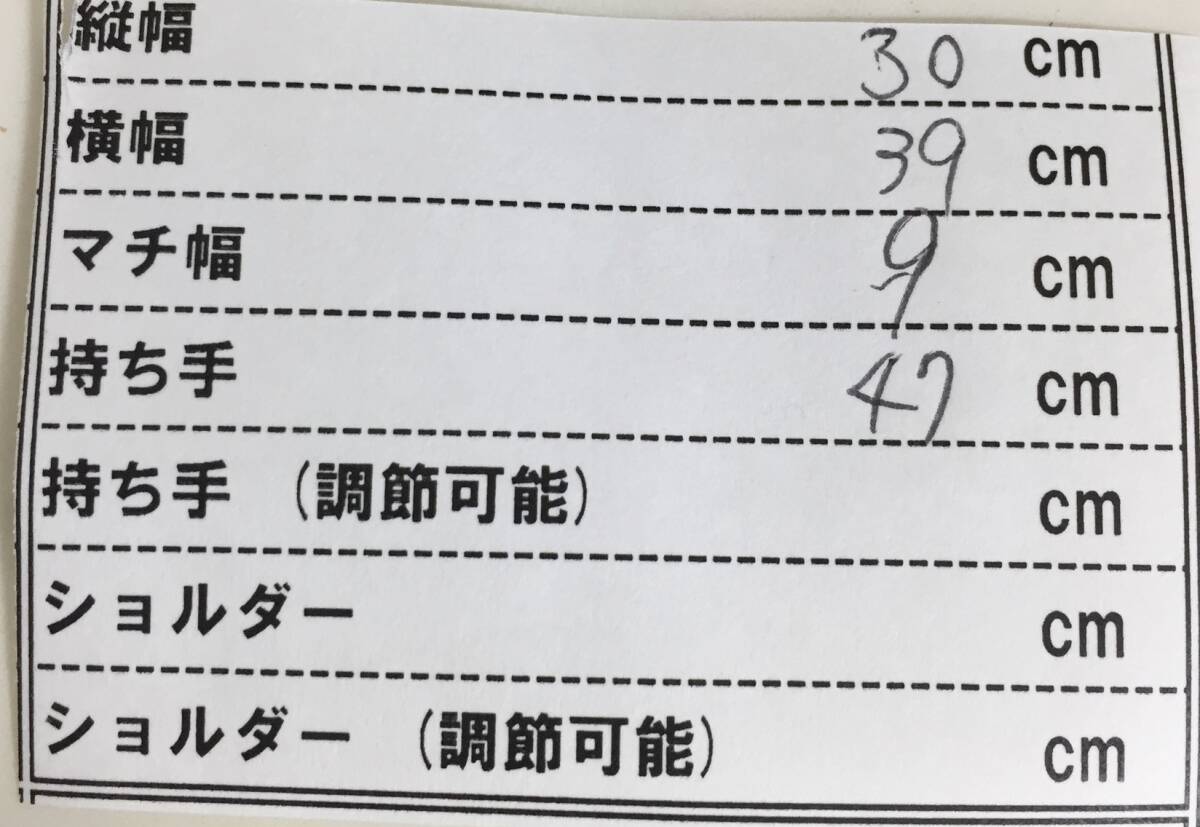 縦幅 30 cm
横幅 39 cm
マチ幅 9 cm
持ち手 47 cm
持ち手 (調節可能) cm
ショルダー cm
ショルダー (調節可能) cm